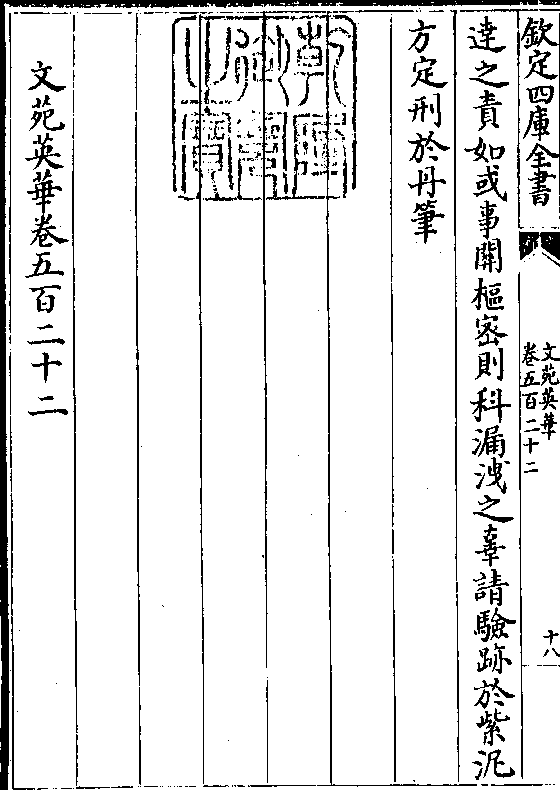 欽定四庫全書
文苑英華
卷五百二十二
十八
違之責如或事關樞密則科漏洩之辜請驗跡於紫泥
方定刑於丹筆
乾隆御覽之寶
文苑英華卷五百二十二